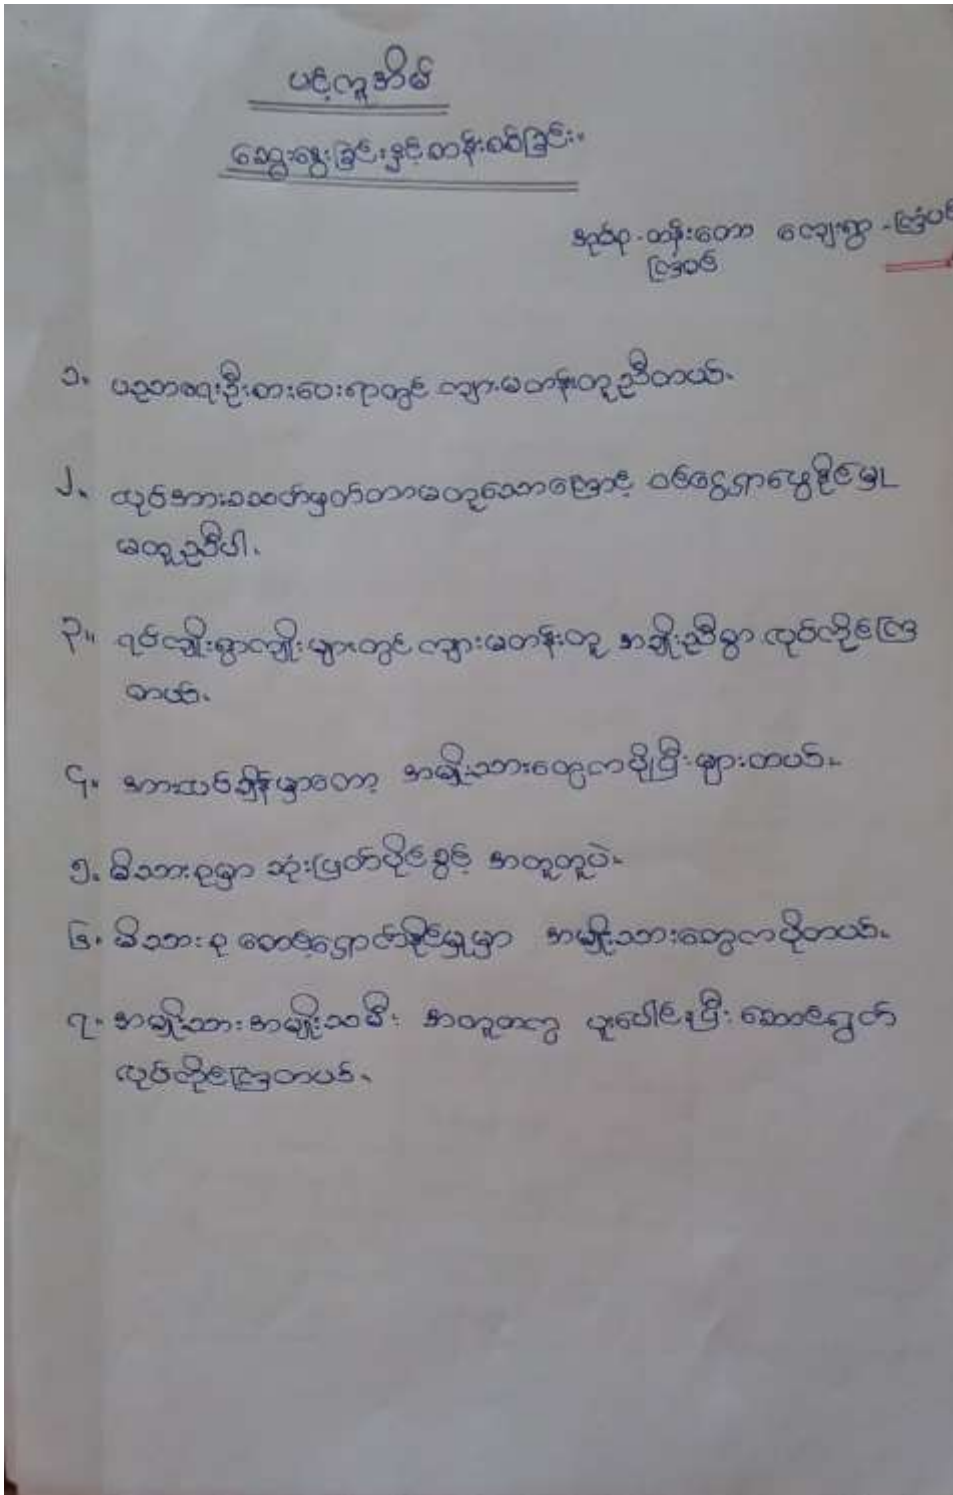 ပင့်ကူအိမ်
ဆွေးနွေးခြင်းနှင့်တန်းစစ်ခြင်း။
အုပ်စု-တန်းတော ကျေးရွာ-ကြံခင်း
ကြံခင်း
၁။ ပညာရေးဦးစားပေးရာတွင် ကျားမတန်းတူညီတယ်။
၂။ လုပ်အားခသတ်မှတ်တာမတူသောကြောင့် ဝင်ငွေရှာဖွေနိုင်မှု
မတူညီပါ။
၃။ ရပ်ကျိုးရွာကျိုးများတွင် ကျားမတန်းတူ အမျိုးညီစွာ လုပ်ကိုင်ကြ
တယ်။
၄။ အားလပ်ချိန်မှာတော့ အမျိုးသားတွေကပိုပြီးများတယ်။
၅။ မိသားစုမှာ ဆုံးဖြတ်ပိုင်ခွင့် အတူတူပဲ။
၆။ မိသားစု စောင့်ရှောက်နိုင်မှုမှာ အမျိုးသားတွေကပိုတယ်။
၇။ အမျိုးသား အမျိုးသမီး အတူတကွ ပူးပေါင်းပြီး ဆောင်ရွက်
လုပ်ကိုင်ကြတယ်။